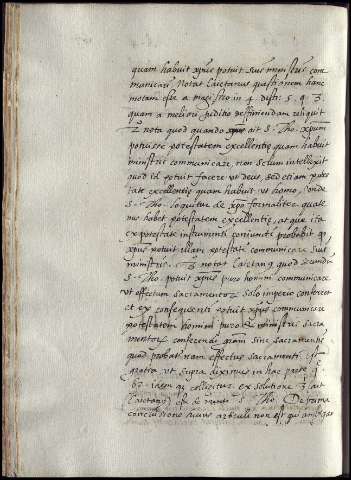 quam habuit xpūs potuit suis ministris com
municari. Notat Caietanus quaestionem hanc
motam esse a magistro in 4 dist. 5. q. 3.
quam a meliori iudicio definiendam reliquit
2 nota quod quando ait S. Tho. xpum
potuisse potestatem excellentiae quam habuit
ministris communicare, non solum intellexit
quod id potuit facere ut deus, sed etiam potes
tate excellentiae quam habuit ut homo, unde
S. Tho. loquitur de xpo formaliter quate
nus habet potestatem excellentiae, atque ita
ex potestate instrumenti coniuncti probabit q
xpūs potuit illam potestatē communicare suis
ministris. 3 notat Caetanq quod secundū
S. Tho. potuit xpūs puro homini communicare
ut effectum sacramentorū solo imperio conferret
et ex consequenti potuit xpūs communicare
potestatem homini puro ministris sacra
mentorū conferendi gratiā sine sacramento
quod probat nam effectus sacramenti
gratia ut supra diximus in hac parte q.
62 idem colligitur ex solutione 3 ait
Caietano est S. Tho. De prima
conclusione huius articuli non est qui ambigat